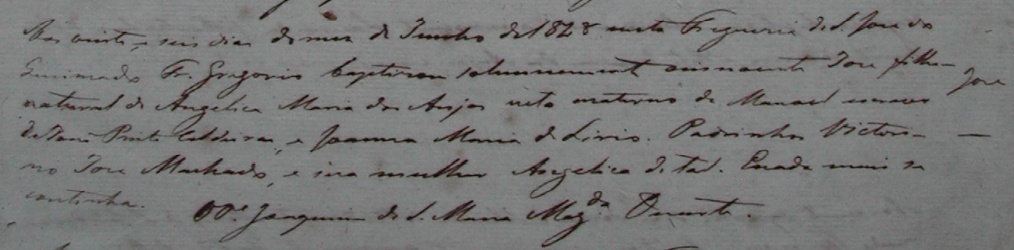 Aos vinte, e seis dias do mez de Junho de 1828 nesta Freguezia de S. Jose do
Fr. Gregorio baptizou solemnemente Jose filho
Jose
natural de Angelica Maria dos Anjos neto materno de Manoel
de Jose Pinto Caldeira, e Joanna Maria de Padrinhos Victori-
no Jose Machado, e sua mulher Angelica de tal. E nada mais se
continha.
O Vo. Joaquim de S. Maria Mag.da Duarte.